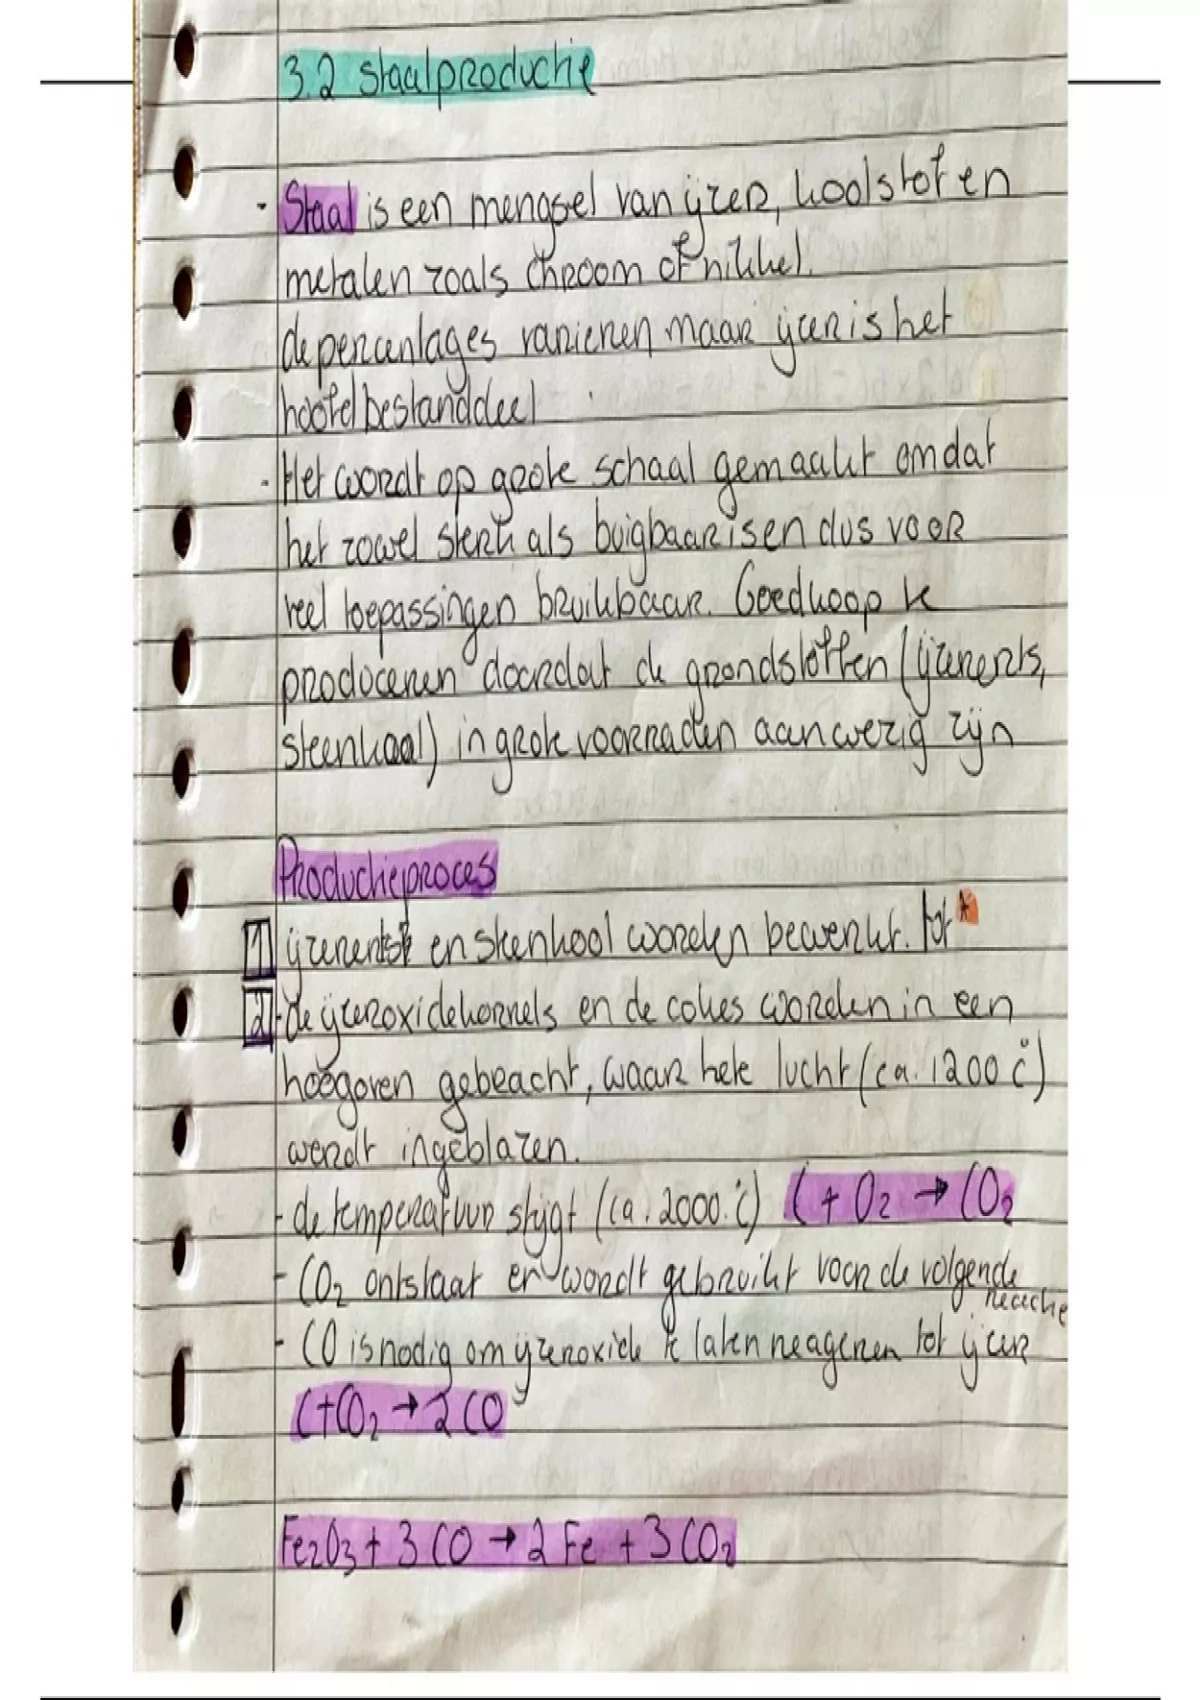 3.2 Staalproductie
- Staal is een mengsel van ijzer, koolstof en
metalen zoals chroom of nikkel.
de percentages variëren maar ijzer is het
hoofdbestanddeel
- Het wordt op grote schaal gemaakt omdat
het zowel sterk als buigbaar is en dus voor
veel toepassingen bruikbaar. Goedkoop te
produceren doordat de grondstoffen (ijzererts,
steenkool) in grote voorraden aanwezig zijn
Productieproces
1 ijzererts en steenkool worden bewerkt. tot *
2 - de ijzeroxidekorrels en de cokes worden in een
hoogoven gebracht, waar hete lucht (ca. 1200 °C)
wordt ingeblazen.
- de temperatuur stijgt (ca. 2000 °C) C + O₂ → CO₂
- CO₂ ontstaat en wordt gebruikt voor de volgende
reactie
- CO is nodig om ijzeroxide te laten reageren tot ijzer
C + CO₂ → 2 CO
Fe₂O₃ + 3 CO → 2 Fe + 3 CO₂